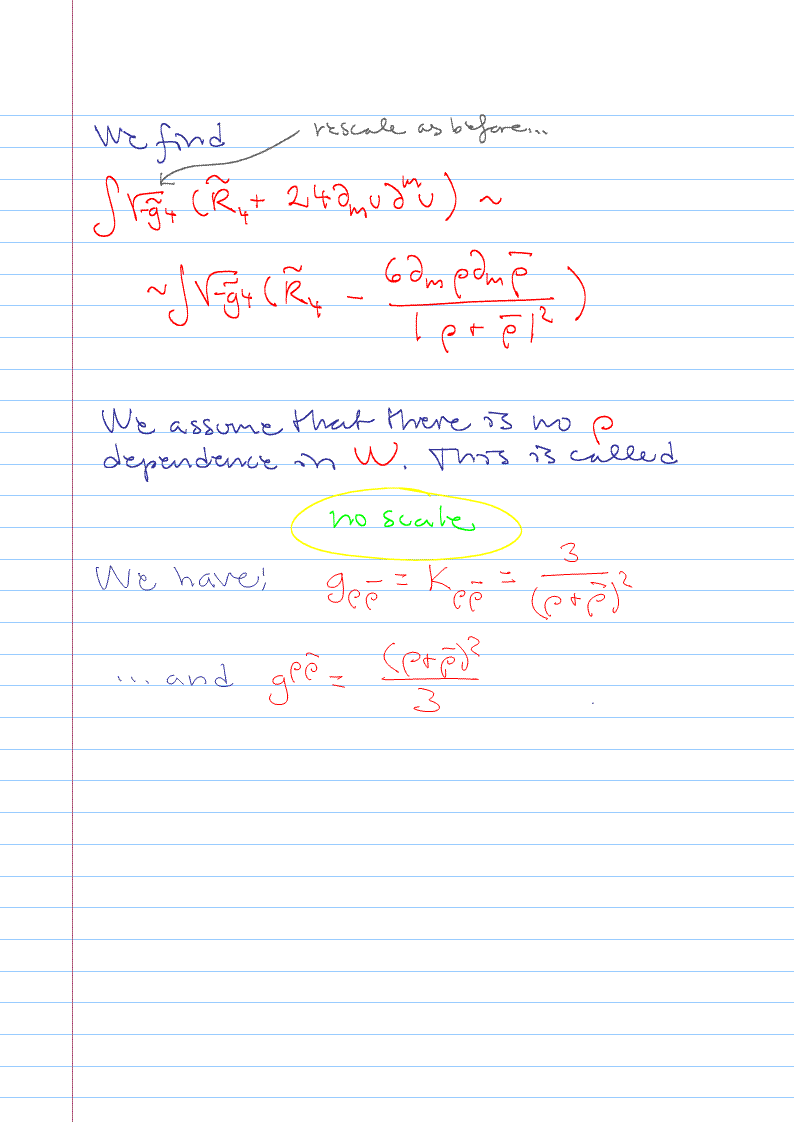 We find rescale as before...
∫√-g̃₄ (R̃₄ + 24∂ₘυ∂ᵐυ) ~
~∫√-g̃₄ (R̃₄ - 6∂ₘρ∂ₘρ̄ / |ρ + ρ̄|²)
We assume that there is no ρ
dependence in W. This is called
no scale
We have; g_ρρ̄ = K_ρρ̄ = 3 / (ρ+ρ̄)²
... and g^ρρ̄ = (ρ+ρ̄)² / 3